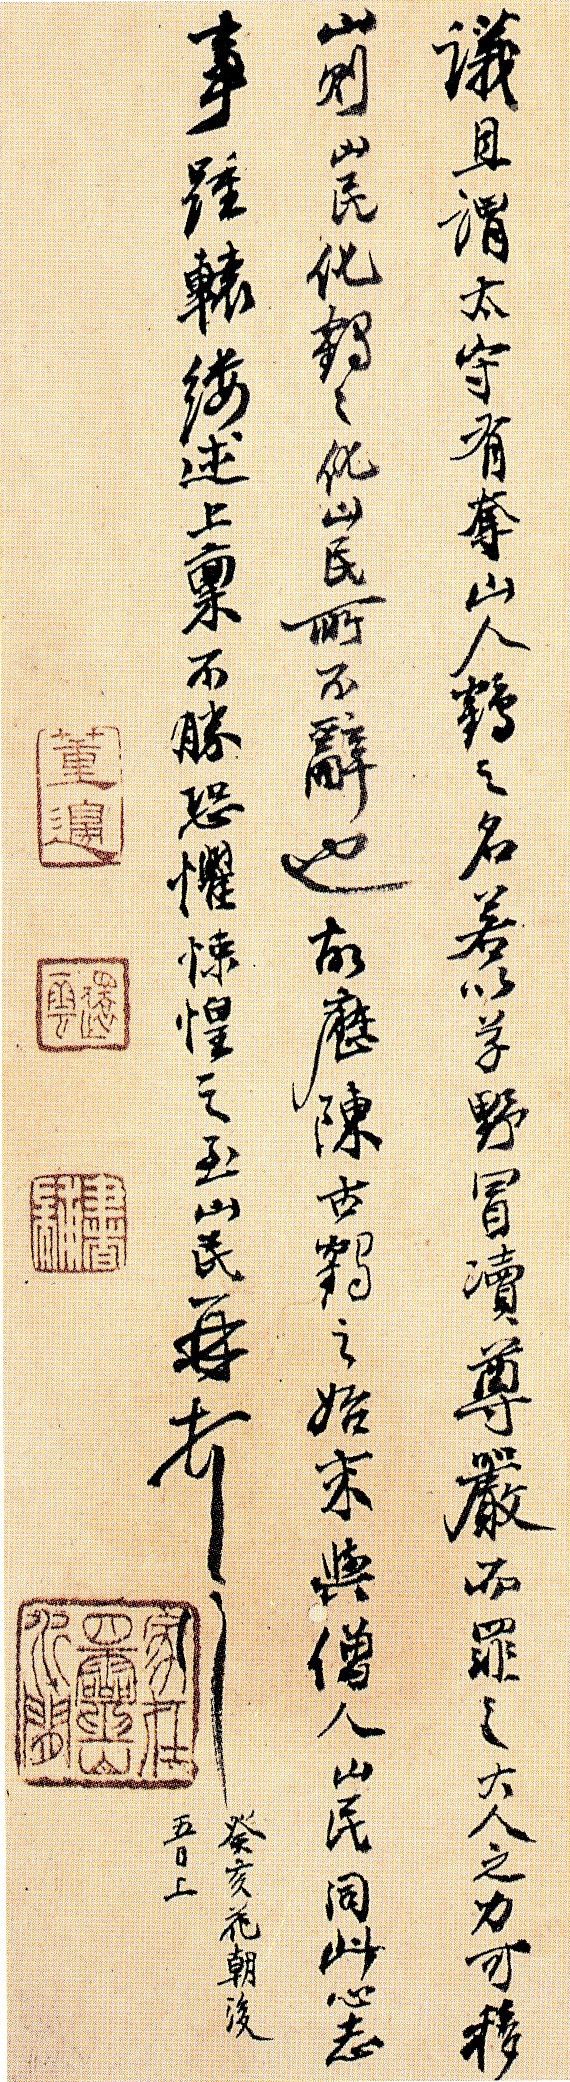 議且謂太守有奪山人鶴之名若以草野冒瀆尊嚴而罪之大人之力可移
山則山民化鶴々化山民所不辭也故歷陳古鶴之始末與僧人山民同此心志
事踵轅縷述上稟不勝恐懼悚惶之至山民再
癸亥花朝後
五日上
家在四靈山水間